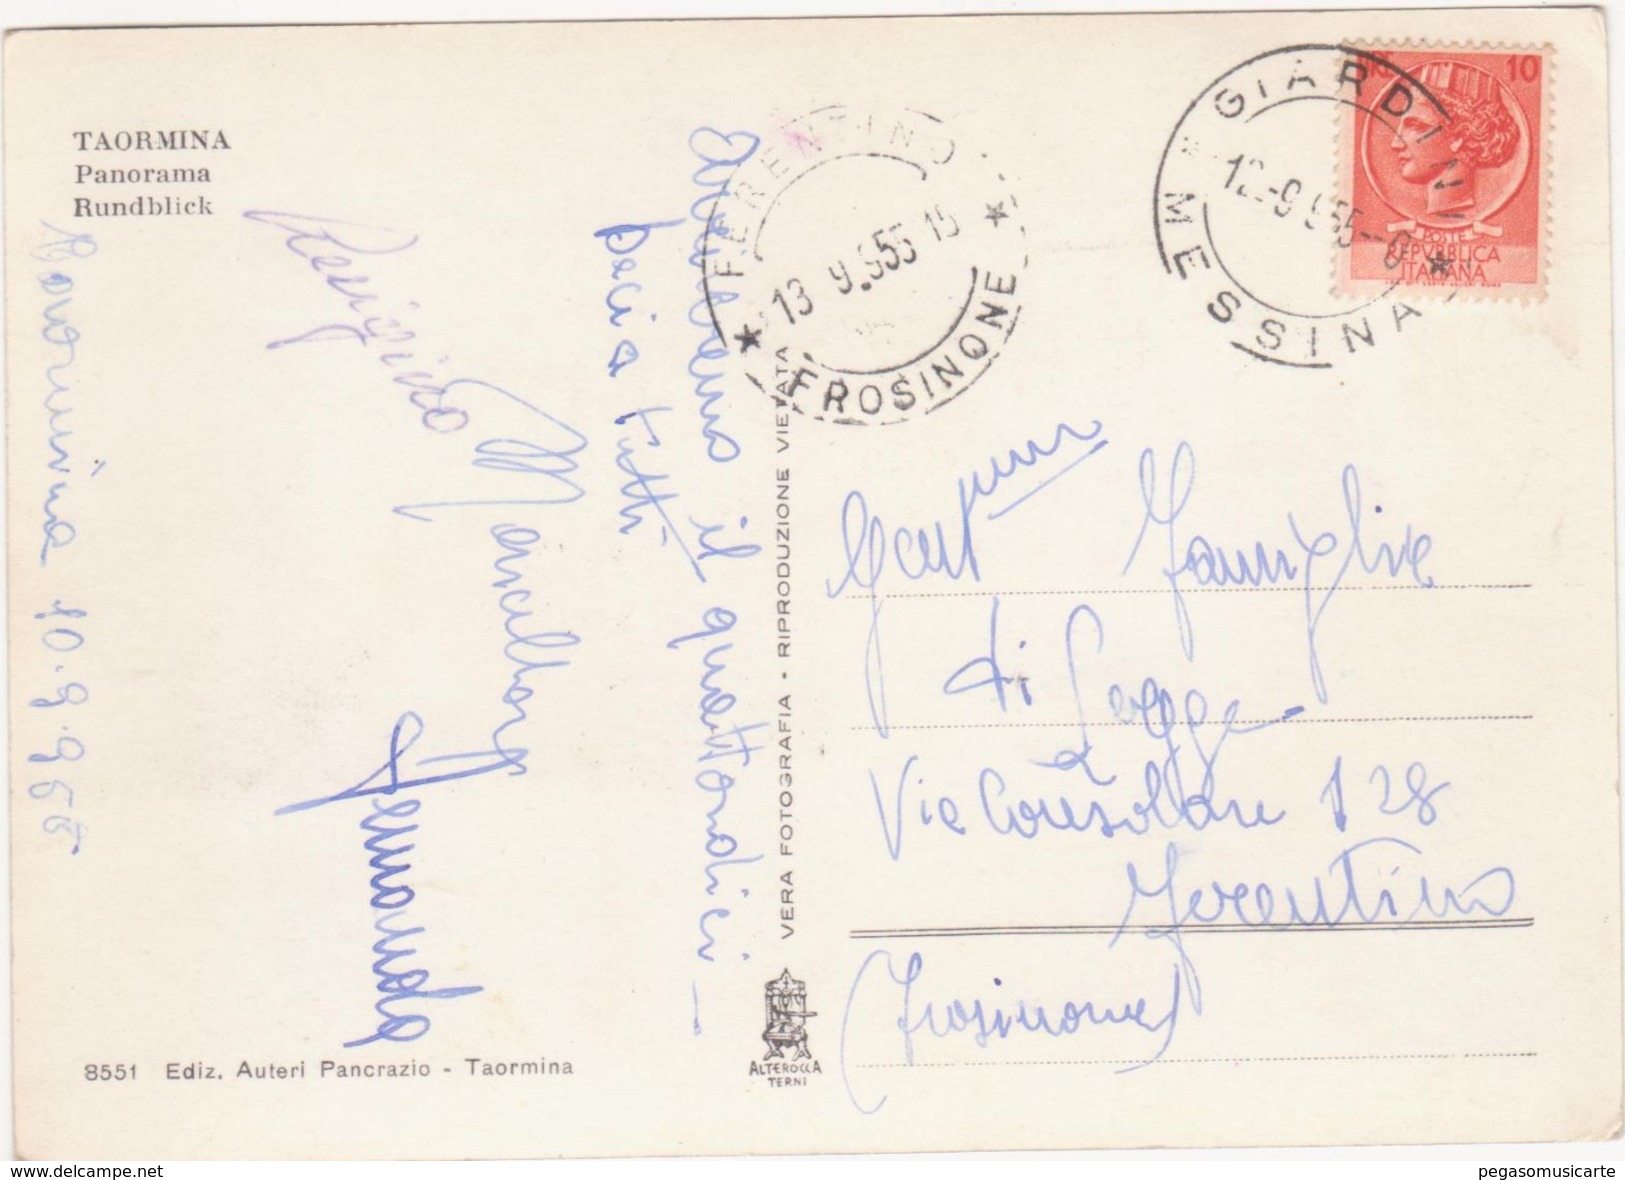 TAORMINA
Panorama
Rundblick
Taormina 10.9.955
Arriveremo il quattordici -
baci a tutti
Marcello
Fernanda
8551 Ediz. Auteri Pancrazio - Taormina
VERA FOTOGRAFIA • RIPRODUZIONE VIETATA
ALTEROCCA
TERNI
FERENTINO
13 9.955 15
FROSINONE
GIARDINI
12-9 955-
MESSINA
LIRE 10
POSTE
REPVBBLICA
ITALIANA
Famiglia
di Legge
Via Consolare 128
Ferentino
(Frosinone)
www.delcampe.net
pegasomusicarte